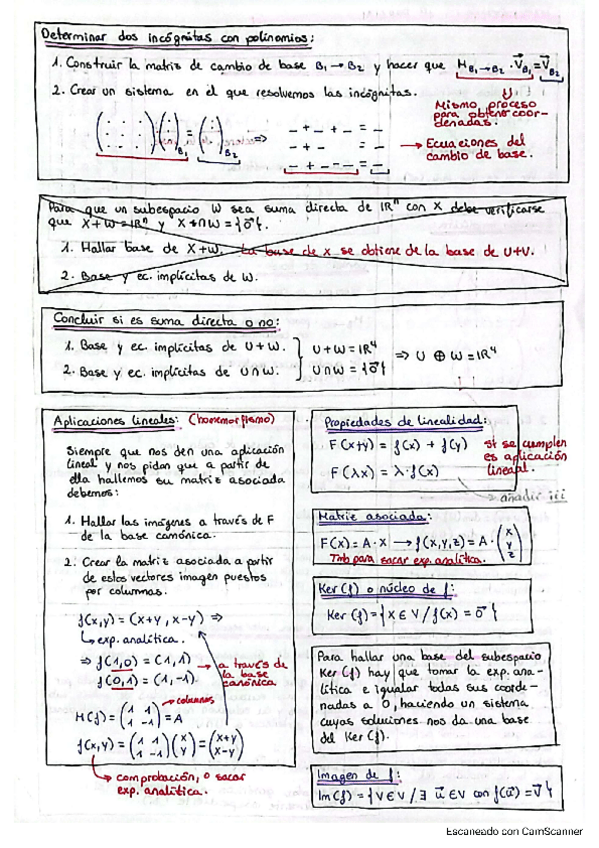 Determinar dos incógnitas con polinomios:
1. Construir la matriz de cambio de base B₁→B₂ y hacer que M_{B₁→B₂} · V⃗_{B₁} = V⃗_{B₂}
2. Crear un sistema en el que resolvemos las incógnitas.
Mismo proceso
para obtener coor-
denadas.
⇒ _ + _ + _ = _
_ + _ = _
_ + _ - _ = _
→ Ecuaciones del
cambio de base.
Para que un subespacio W sea suma directa de ℝⁿ con X debe verificarse
que X+W=ℝⁿ y X∩W={0⃗}.
1. Hallar base de X+W. La base de X se obtiene de la base de U+V.
2. Base y ec. implícitas de W.
Concluir si es suma directa o no:
1. Base y ec. implícitas de U+W. } U+W=ℝ⁴
2. Base y ec. implícitas de U∩W. } U∩W={0⃗} ⇒ U ⊕ W=ℝ⁴
Aplicaciones lineales: (homomorfismo)
Siempre que nos den una aplicación
lineal y nos pidan que a partir de
ella hallemos su matriz asociada
debemos:
1. Hallar las imágenes a través de F
de la base canónica.
2. Crear la matriz asociada a partir
de estos vectores imagen puestos
por columnas.
f(x,y) = (x+y, x-y) ⇒
↳ exp. analítica.
⇒ f(1,0) = (1,1)
f(0,1) = (1,-1).
→ a través de
la base
canónica
→ columnas
M(f) = (1 1 / 1 -1) = A
f(x,y) = (1 1 / 1 -1)(x / y) = (x+y / x-y)
→ comprobación, o sacar
exp. analítica.
Propiedades de linealidad:
F(x+y) = f(x) + f(y)
F(λx) = λ·f(x)
si se cumplen
es aplicación
lineal.
→ añadir iii
Matriz asociada:
F(x) = A·x → f(x,y,z) = A·(x / y / z)
Tmb para sacar exp. analítica.
Ker(f) o núcleo de f:
Ker(f) = {x ∈ V / f(x) = 0⃗}
Para hallar una base del subespacio
Ker(f) hay que tomar la exp. ana-
lítica e igualar todas sus coorde-
nadas a 0, haciendo un sistema
cuyas soluciones nos da una base
del Ker(f).
Imagen de f:
Im(f) = {v ∈ V / ∃ u⃗ ∈ V con f(u⃗) = v⃗}
Escaneado con CamScanner